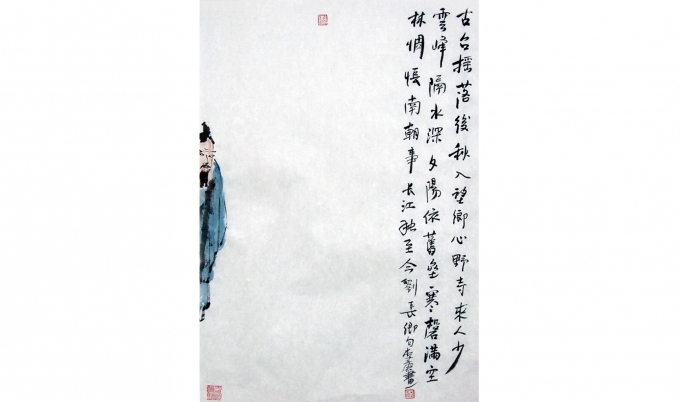 古台搖落後秋入望鄉心野寺來人少
雲峰隔水深夕陽依舊壘寒磬滿空
林惆悵南朝事长江独至今劉長卿句